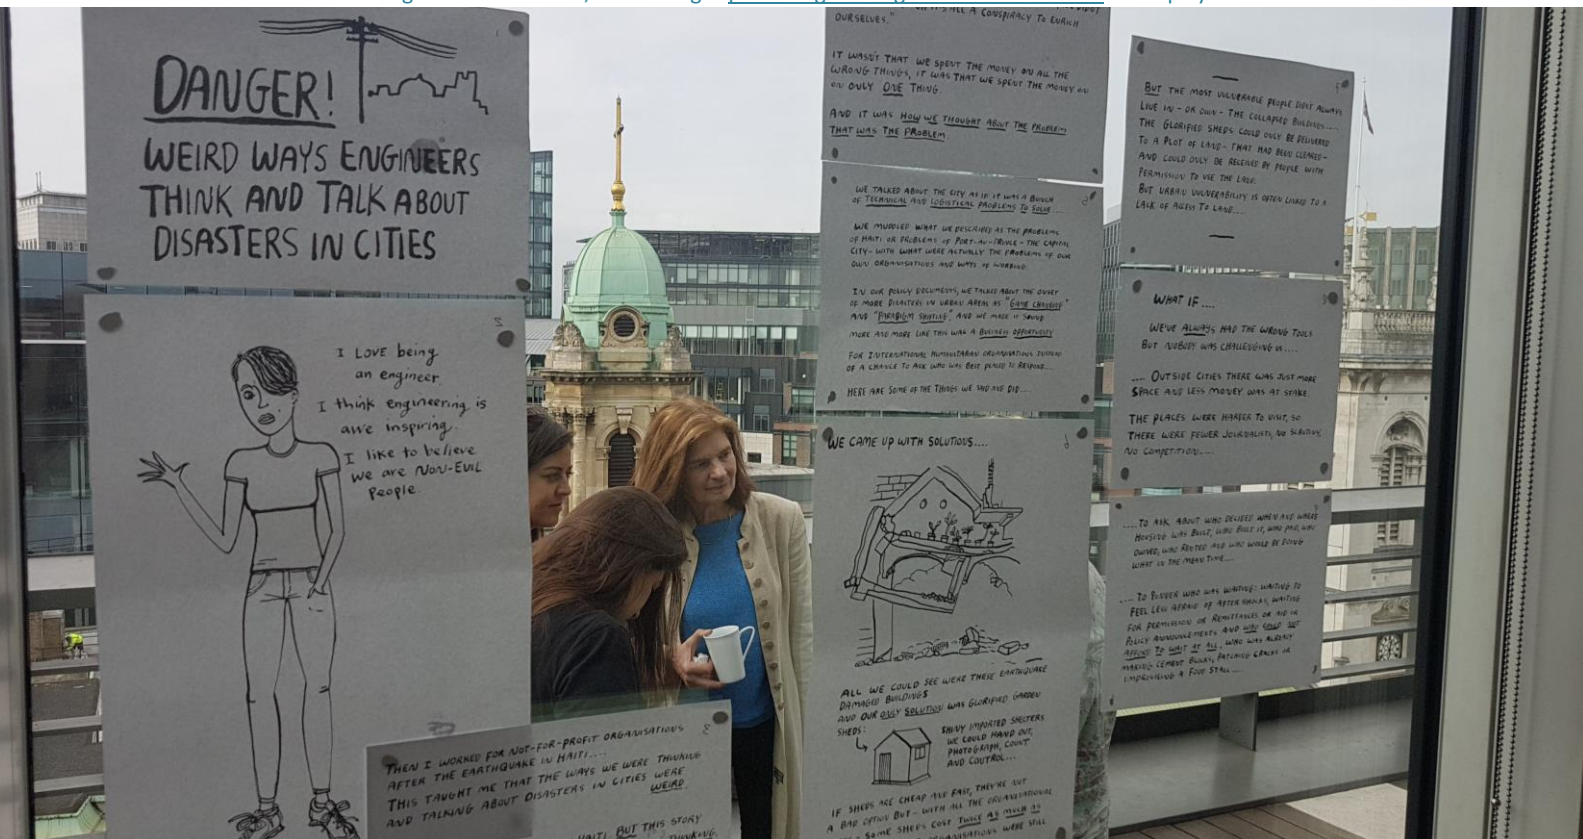 DANGER!
WEIRD WAYS ENGINEERS
THINK AND TALK ABOUT
DISASTERS IN CITIES
I LOVE being
an engineer.
I think engineering is
awe inspiring.
I like to believe
we are NON-EVIL
People.
THEN I WORKED FOR NOT-FOR-PROFIT ORGANISATIONS
AFTER THE EARTHQUAKE IN HAITI....
THIS TAUGHT ME THAT THE WAYS WE WERE THINKING
AND TALKING ABOUT DISASTERS IN CITIES WERE
WEIRD.
HAITI. BUT THIS STORY
THINKING.
ALL A CONSPIRACY TO ENRICH
OURSELVES."
IT WASN'T THAT WE SPENT THE MONEY ON ALL THE
WRONG THINGS, IT WAS THAT WE SPENT THE MONEY ON
ONLY ONE THING.
AND IT WAS HOW WE THOUGHT ABOUT THE PROBLEM
THAT WAS THE PROBLEM.
WE TALKED ABOUT THE CITY AS IF IT WAS A BUNCH
OF TECHNICAL AND LOGISTICAL PROBLEMS TO SOLVE....
WE MUDDLED WHAT WE DESCRIBED AS THE PROBLEMS
OF HAITI OR PROBLEMS OF PORT-AU-PRINCE - THE CAPITAL
CITY - WITH WHAT WERE ACTUALLY THE PROBLEMS OF OUR
OWN ORGANISATIONS AND WAYS OF WORKING.
IN OUR POLICY DOCUMENTS, WE TALKED ABOUT THE ONSET
OF MORE DISASTERS IN URBAN AREAS AS "GAME CHANGING"
AND "PARADIGM SHIFTING" AND WE MADE IT SOUND
MORE AND MORE LIKE THIS WAS A BUSINESS OPPORTUNITY
FOR INTERNATIONAL HUMANITARIAN ORGANISATIONS INSTEAD
OF A CHANCE TO ASK WHO WAS BEST PLACED TO RESPOND....
HERE ARE SOME OF THE THINGS WE SAID AND DID....
WE CAME UP WITH SOLUTIONS....
ALL WE COULD SEE WERE THESE EARTHQUAKE
DAMAGED BUILDINGS
AND OUR ONLY SOLUTION WAS GLORIFIED GARDEN
SHEDS:
SHINY IMPORTED SHELTERS
WE COULD HAND OUT,
PHOTOGRAPH, COUNT
AND CONTROL...
IF SHEDS ARE CHEAP AND FAST, THEY'RE NOT
A BAD OPTION BUT - WITH ALL THE ORGANISATIONAL
SOME SHEDS COST TWICE AS MUCH AS
ORGANISATIONS WERE STILL
BUT THE MOST VULNERABLE PEOPLE DIDN'T ALWAYS
LIVE IN - OR OWN - THE COLLAPSED BUILDINGS....
THE GLORIFIED SHEDS COULD ONLY BE DELIVERED
TO A PLOT OF LAND - THAT HAD BEEN CLEARED -
AND COULD ONLY BE RECEIVED BY PEOPLE WITH
PERMISSION TO USE THE LAND.
BUT URBAN VULNERABILITY IS OFTEN LINKED TO A
LACK OF ACCESS TO LAND....
WHAT IF....
WE'VE ALWAYS HAD THE WRONG TOOLS
BUT NOBODY WAS CHALLENGING US....
.... OUTSIDE CITIES THERE WAS JUST MORE
SPACE AND LESS MONEY WAS AT STAKE.
THE PLACES WERE HARDER TO VISIT, SO
THERE WERE FEWER JOURNALISTS, NO SCRUTINY,
NO COMPETITION....
....TO ASK ABOUT WHO DECIDED WHEN AND WHERE
HOUSING WAS BUILT, WHO BUILT IT, WHO PAID, WHO
OWNED, WHO RENTED AND WHO WOULD BE DOING
WHAT IN THE MEAN TIME....
.... TO PONDER WHO WAS WAITING: WAITING TO
FEEL LESS AFRAID OF AFTERSHOCKS, WAITING
FOR PERMISSION OR REMITTANCES OR AID OR
POLICY ANNOUNCEMENTS AND WHO COULD NOT
AFFORD TO WAIT AT ALL. WHO WAS ALREADY
MAKING CEMENT BLOCKS, PATCHING CRACKS OR
IMPROVISING A FOOD STALL....